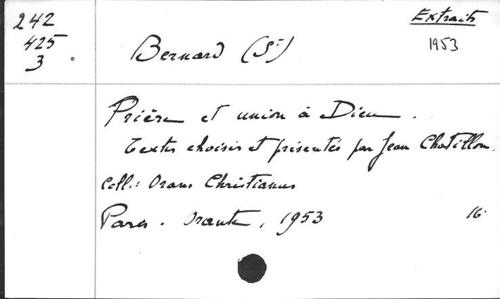 242
425
3.
Extraits
1953
Bernard (St)
Prière et union à Dieu.
Textes choisis et présentés par Jean Chatillon.
Coll.: Orans Christianus
Paris. Orante, 1953 16